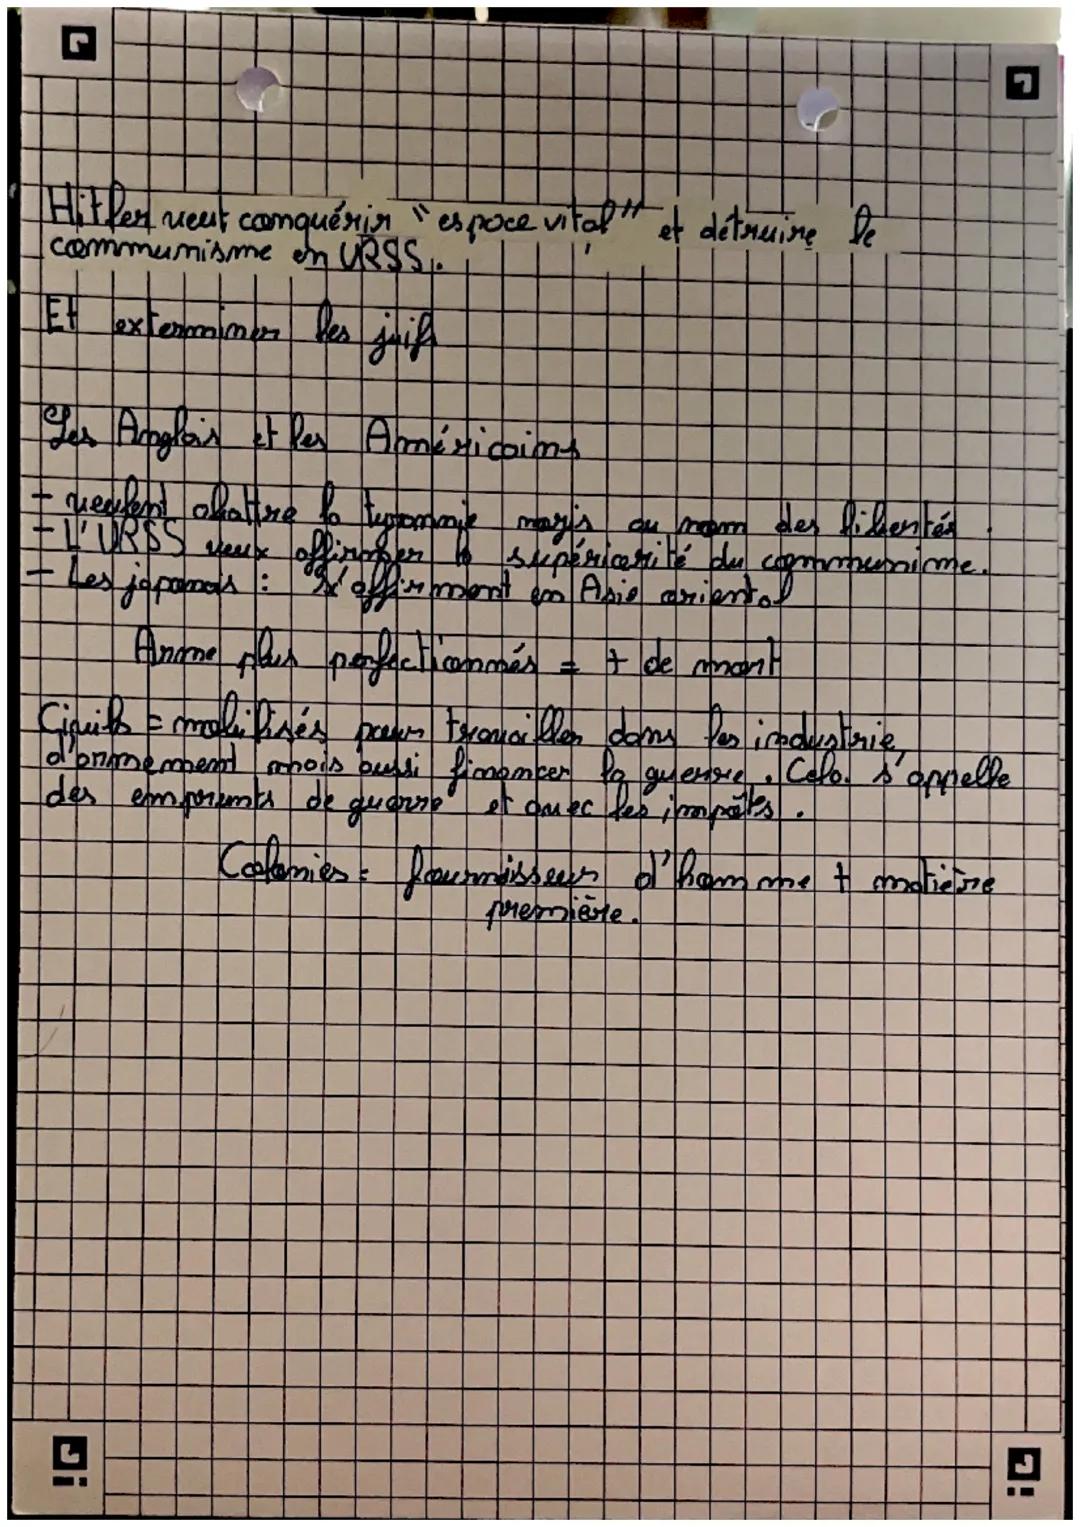 Hitler veut conquérir "espace vital" et détruire le
communisme en URSS.
Et exterminer les juifs
Les Anglais et les Américains
- veulent abattre la tyrannie nazis au nom des libertés.
- L'URSS veux affirmer la supériorité du communisme.
- Les japonais : s'affirment en Asie oriental
Arme plus perfectionnés = + de mort
Civils = mobilisés pour travailler dans les industrie,
d'armement mais aussi financer la guerre. Cela s'appelle
des emprunts de guerre et avec les impôts.
Colonies = fournisseur d'homme + matière
première.